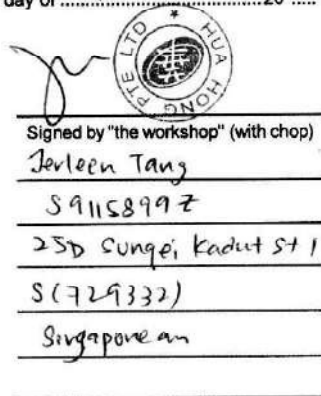 day of ........................................20 .....
HUA HONG PTE LTD *
Signed by "the workshop" (with chop)
Jerleen Tang
S9115899Z
25D Sungei Kadut St 1
S(729332)
Singaporean